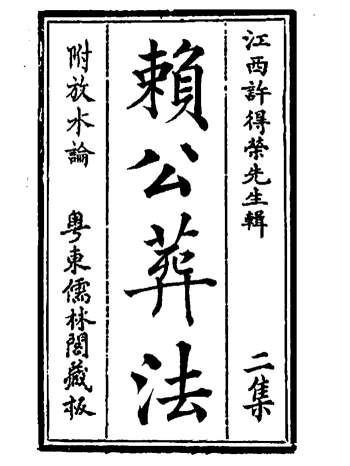 江西許得榮先生輯
二集
賴公葬法
附放水論
粵東儒林閣藏板